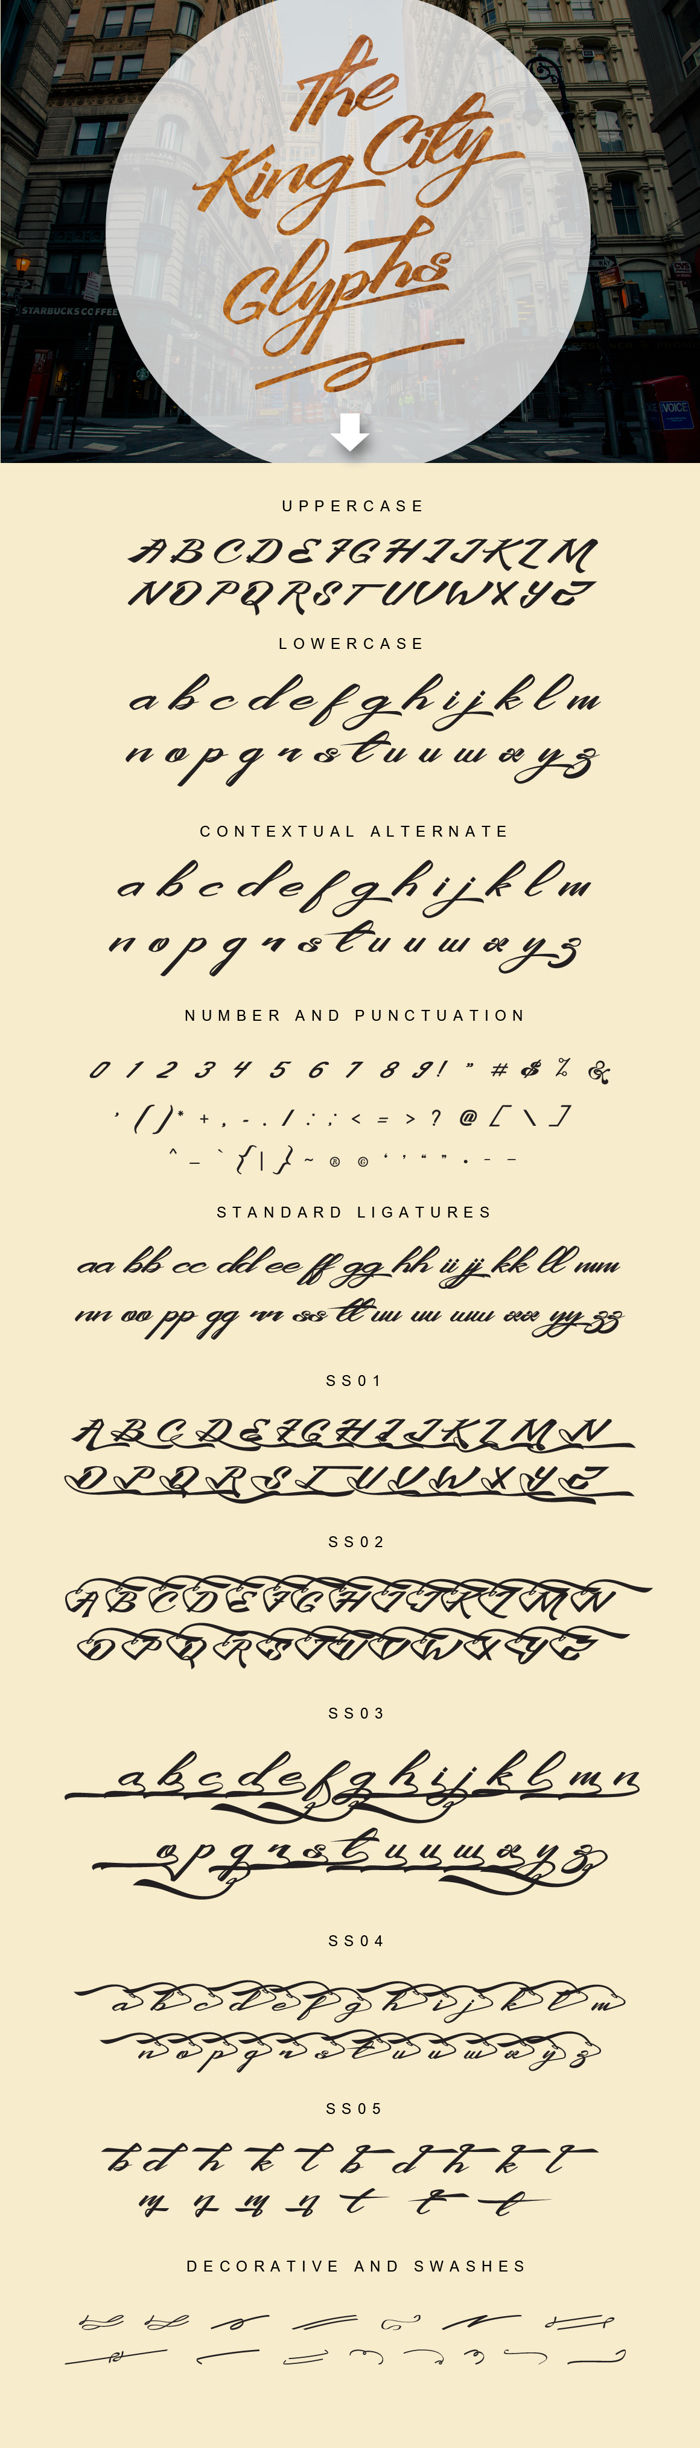 The
King City
Glyphs
STARBUCKS COFFEE
VOICE
UPPERCASE
A B C D E F G H I J K L M
N O P Q R S T U V W X Y Z
LOWERCASE
a b c d e f g h i j k l m
n o p q r s t u v w x y z
CONTEXTUAL ALTERNATE
a b c d e f g h i j k l m
n o p q r s t u v w x y z
NUMBER AND PUNCTUATION
0 1 2 3 4 5 6 7 8 9 ! " # $ % &
' ( ) * + , - . / : ; < = > ? @ [ \ ]
^ _ ` { | } ~ ® © ‘ ’ “ ” • – —
STANDARD LIGATURES
aa bb cc dd ee ff gg hh ii jj kk ll mm
nn oo pp qq rr ss tt uu vv ww xx yy zz
SS01
A B C D E F G H I J K L M N
O P Q R S T U V W X Y Z
SS02
A B C D E F G H I J K L M N
O P Q R S T U V W X Y Z
SS03
a b c d e f g h i j k l m n
o p q r s t u v w x y z
SS04
a b c d e f g h i j k l m
n o p q r s t u v w x y z
SS05
b d h k l b d h k l
m n m n t t t
DECORATIVE AND SWASHES